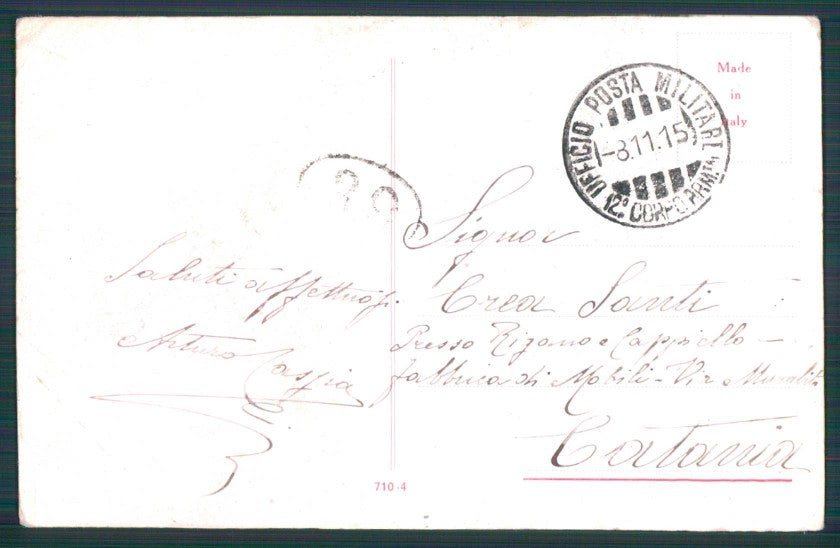 Made
in
Italy
UFFICIO POSTA MILITARE
-8.11.15
12° CORPO ARM
Signor
Saluti affettuosi
Crea Santi
Arturo
Presso Rizano e Cappiello -
Fabbrica di Mobili - Via
Catania
710-4